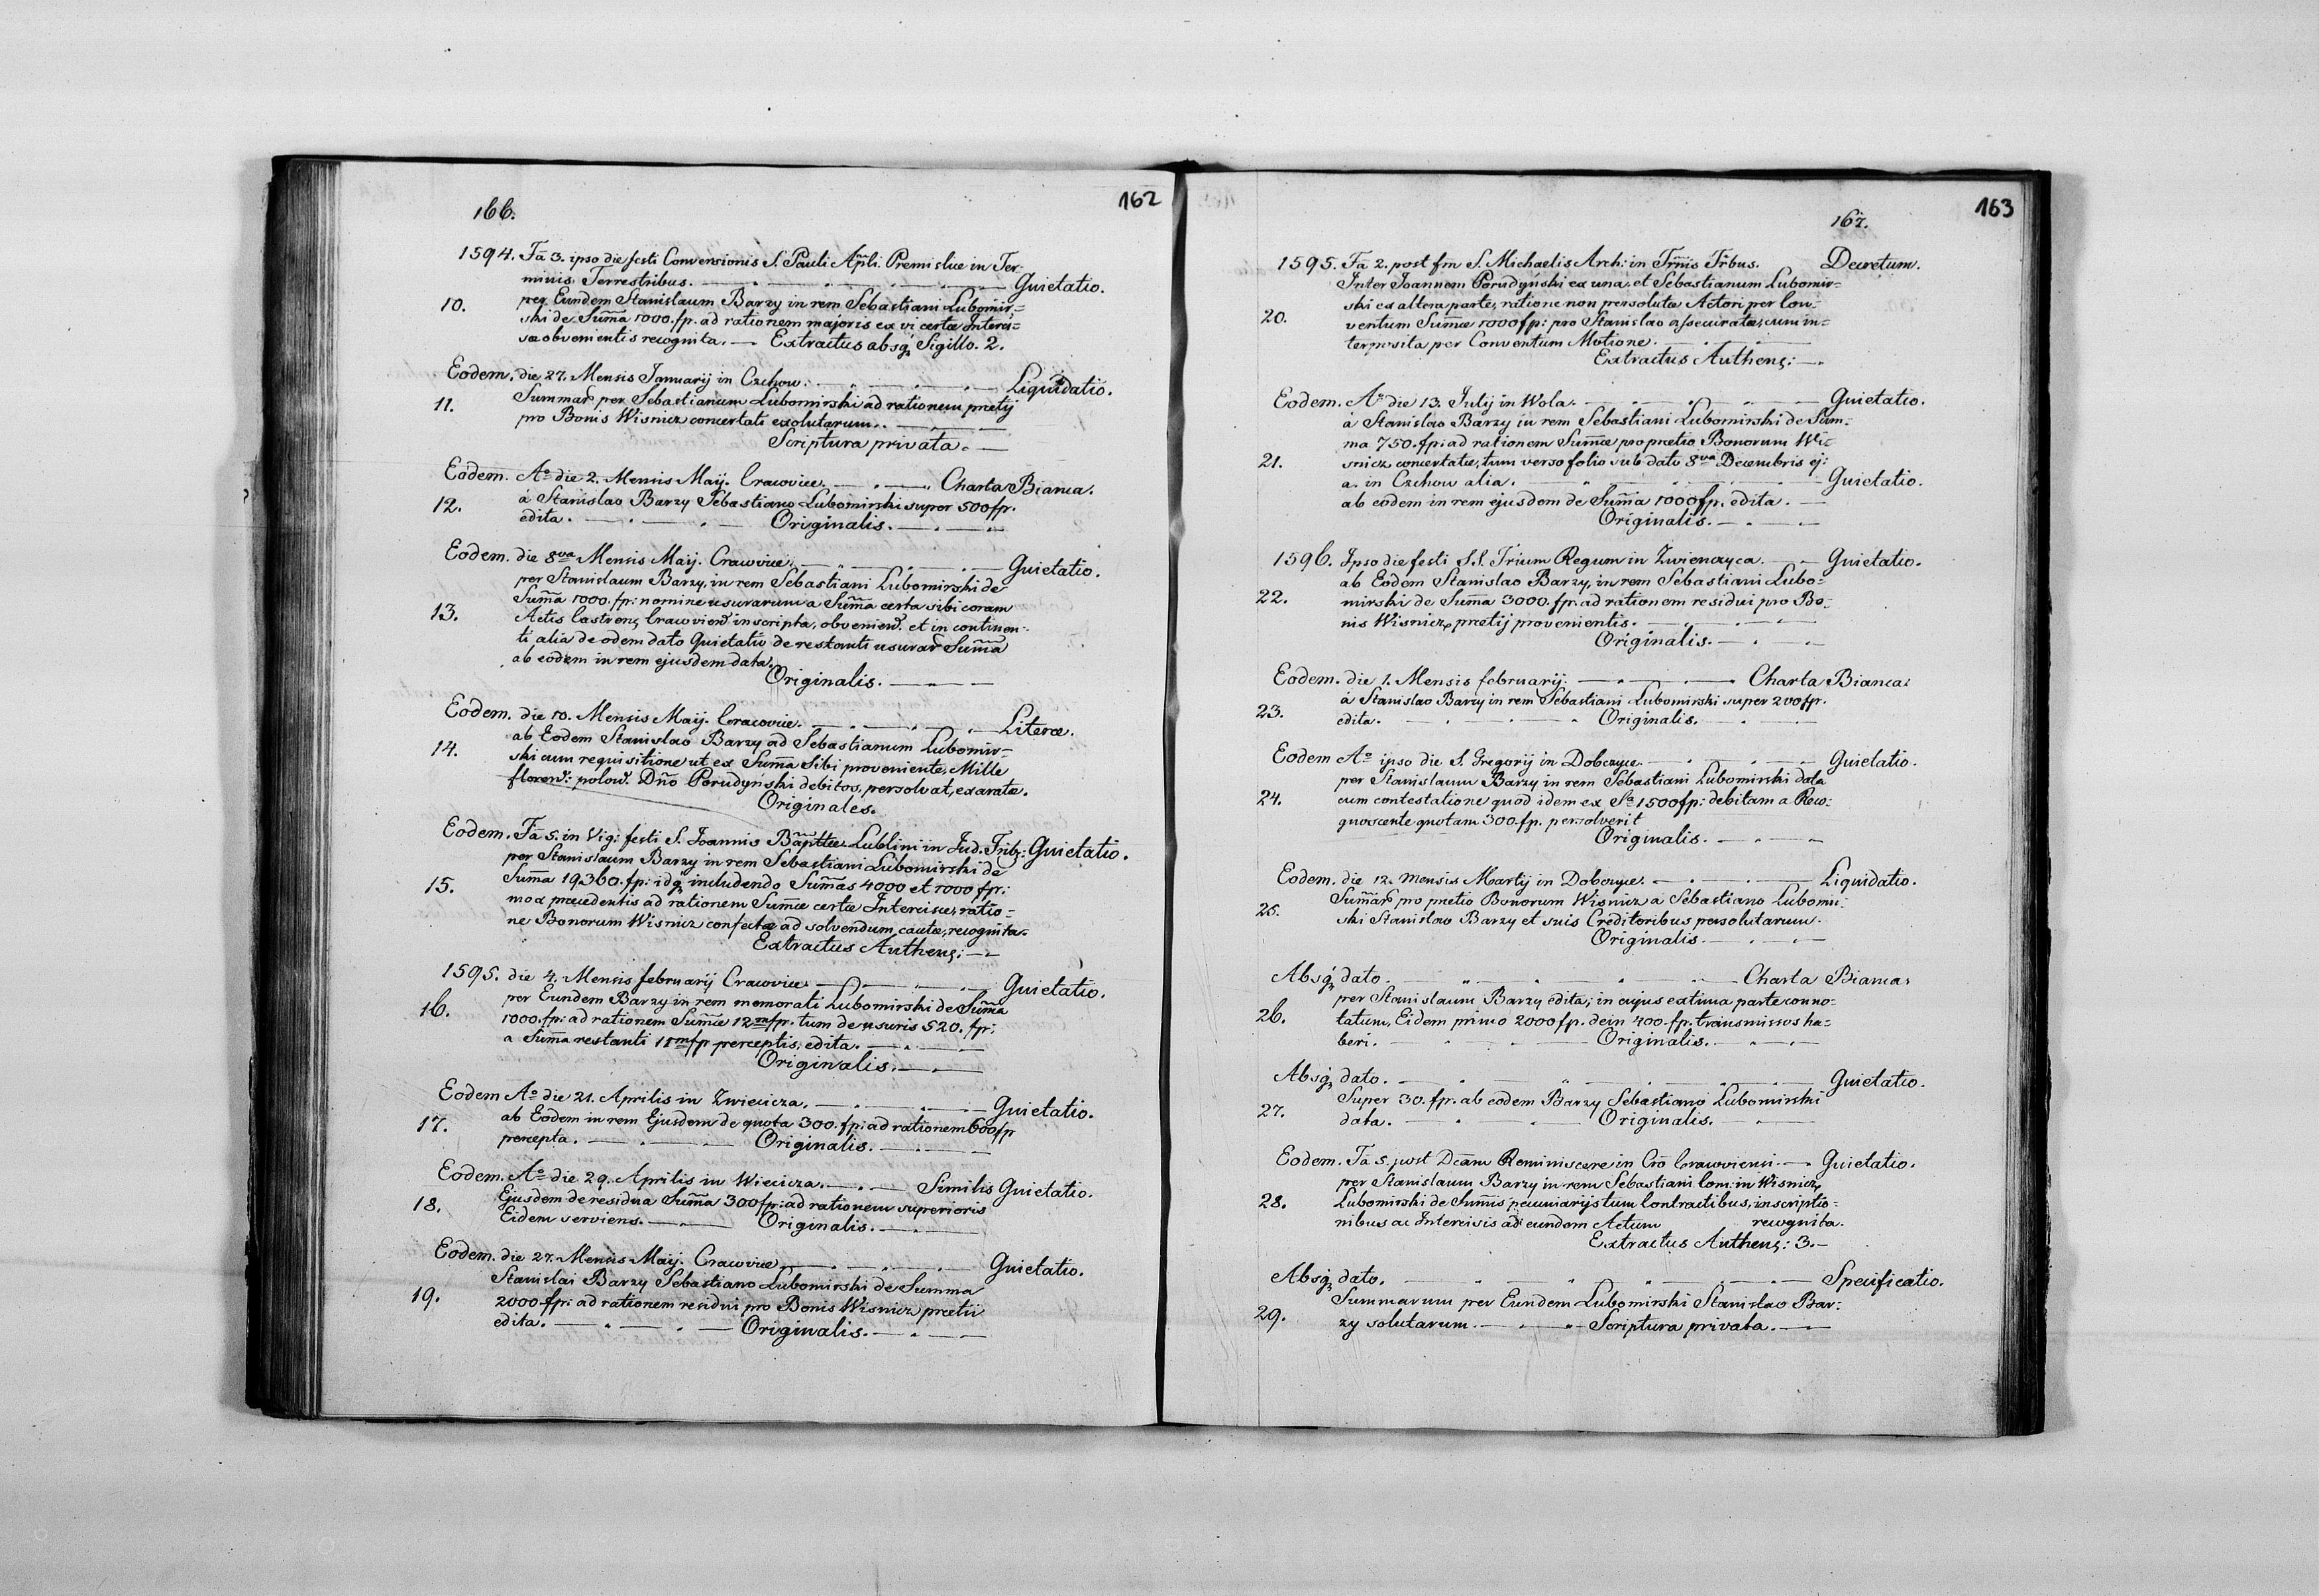 166.
162
1594. Fã 3. ipso die festi Conversionis S. Pauli Apli. Premisliæ in Ter:
minis Terrestribus. Quietatio.
10. per Eundem Stanislaum Barzy in rem Sebastiani Lubomir=
ski de Suma 1000. fp. ad rationem majoris ex vi certæ Interci=
sæ obvenientis recognita. — Extractus absq, Sigillo. 2.
Eodem. die 27. Mensis Januarij in Czchow. Liquidatio.
11. Summar per Sebastianum Lubomirski ad rationem pretij
pro Bonis Wisnicz concertati exolutarum.
Scriptura privata.
Eodem. Aº die 2. Mensis Maij. Cracoviæ. Charta Bianca.
12. à Stanislao Barzy Sebastiano Lubomirski super 500 fp.
edita. Originalis.
Eodem. die 8va Mensis Maij. Cracoviæ. Quietatio.
per Stanislaum Barzy, in rem Sebastiani Lubomirski de
Suma 1000. fp: nomine usurarum a Suma certa sibi coram
13. Actis Castrens, Cracovien inscripta, obvenien. et in continen:
ti alia de eodem dato Quietatio de restanti usurar Suma
ab eodem in rem ejusdem data.
Originalis.
Eodem. die 10. Mensis Maij. Cracoviæ. Literæ.
ab Eodem Stanislao Barzy ad Sebastianum Lubomir=
14. ski cum requisitione ut ex Suma Sibi proveniente, Mille
floren: polon. Dño Porudyński debitos, persolvat, exaratæ.
Originales.
Eodem. Fã 5. in Vig: festi S. Joannis Baptæ Lublini in Jud. Trib: Quietatio.
per Stanislaum Barzy in rem Sebastiani Lubomirski de
15. Suma 19360. fp: idq, includendo Sumas 4000 et 1000 fp:
mox præcedentis ad rationem Sumæ certæ Intercisæ, ratio=
ne Bonorum Wisnicz confectæ ad solvendum cautæ, recognita.
Extractus Authens:
1595. die 4. Mensis februarij Cracoviæ. Quietatio.
16. per Eundem Barzy in rem memorati Lubomirski de Suma
1000. fp: ad rationem Sumæ 12 m fp. tum de usuris 520. fp:
a Suma restanti 11 m fp perceptis, edita.
Originalis.
Eodem Aº die 21. Aprilis in Zwiecicza. Quietatio.
17. ab Eodem in rem Ejusdem de quota 300. fp: ad rationem 600 fp
percepta. Originalis.
Eodem. Aº die 29. Aprilis in Wiecicza. Similis Quietatio.
18. Ejusdem de residua Suma 300 fp: ad rationem superioris
Eidem serviens. Originalis.
Eodem. die 27. Mensis Maij. Cracoviæ Quietatio.
Stanislai Barzy Sebastiano Lubomirski de Summa
19. 2000. fp: ad rationem residui pro Bonis Wisnicz pretii
edita. Originalis.
163
167.
1595. Fã 2. post fm S. Michaelis Arch: in Trnis Trbus. Decretum.
Inter Joannem Porudyński ex una, et Sebastianum Lubomir=
ski ex altera parte, ratione non persolutæ Actori per Con=
20. ventum Sumæ 1000 fp: pro Stanislao assecuratæ, cum in=
terposita per Conventum Motione.
Extractus Authens:
Eodem. Aº die 13. Julij in Wola. Quietatio.
à Stanislao Barzy in rem Sebastiani Lubomirski de Sum=
ma 750. fp: ad rationem Sumæ pro pretio Bonorum Wi=
21. snicz concertatæ, tum verso folio sub dato 8va Decembris ej:
a. in Czchow alia. Quietatio.
ab eodem in rem ejusdem de Suma 1000 fp. edita.
Originalis.
1596. Ipso die festi S.S. Trium Regum in Zwienczyca. Quietatio.
ab Eodem Stanislao Barzy, in rem Sebastiani Lubo=
22. mirski de Suma 3000. fp. ad rationem residui pro Bo=
nis Wisnicz, pretij provenientis.
Originalis.
Eodem. die 1. Mensis februarij. Charta Bianca.
à Stanislao Barzy in rem Sebastiani Lubomirski super 200 fp.
23. edita. Originalis.
Eodem Aº ipso die S. Gregorij in Dobczyce. Quietatio.
per Stanislaum Barzy in rem Sebastiani Lubomirski data
24. cum contestatione quod idem ex Sa 1500 fp: debitam a Reco:
gnoscente quotam 300. fp. persolverit
Originalis.
Eodem. die 12. Mensis Martij in Dobczyce. Liquidatio.
Sumar pro pretio Bonorum Wisnicz a Sebastiano Lubomir:
25. ski Stanislao Barzy et suis Creditoribus persolutarum.
Originalis.
Absq, dato. Charta Bianca.
per Stanislaum Barzy edita; in cujus extima parte conno=
26. tatum, Eidem primo 2000 fp. dein 400. fp. transmissos ha=
beri. Originalis.
Absq, dato. Quietatio.
Super 30. fp. ab eodem Barzy Sebastiano Lubomirski
27. data. Originalis.
Eodem. Fã 5. post Dcam Reminiscere in Cro Cracoviensi. Quietatio.
per Stanislaum Barzy in rem Sebastiani Com: in Wisnicz
28. Lubomirski de Sumis pecuniarijs tum Contractibus, inscriptio=
nibus ac Intercisis ad eundem Actum recognita.
Extractus Authens: 3.
Absq, dato. Specificatio.
Summarum per Eundem Lubomirski Stanislao Bar=
29. zy solutarum. Scriptura privata.